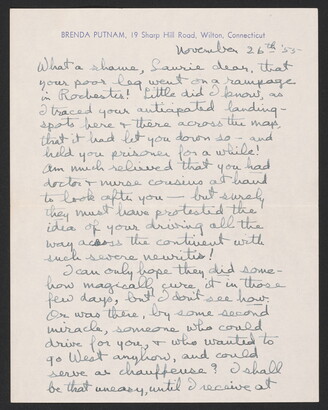 BRENDA PUTNAM, 19 Sharp Hill Road, Wilton, Connecticut
November 26th '55-
What a shame, Laurie dear, that
your poor leg went on a rampage
in Rochester! Little did I know, as
I traced your anticipated landing-
spots here & there across the map,
that it had let you down so - and
held you prisoner for a while!
Am much relieved that you had
doctor & nurse cousins at hand
to look after you — but surely
they must have protested the
idea of your driving all the
way across the continent with
such severe neuritis!
I can only hope they did some-
how magically cure it in those
few days, but I don't see how.
Or was there, by some second
miracle, someone who could
drive for you, & who wanted to
go West anyhow, and could
serve as chauffeuse? I shall
be that uneasy, until I receive at